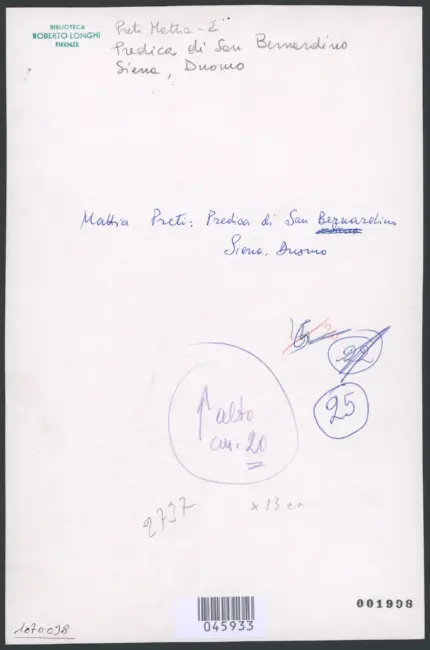 BIBLIOTECA
ROBERTO LONGHI
FIRENZE
Preti Mattia - 2
Predica di San Bernardino
Siena, Duomo
Mattia Preti: Predica di San Bernardino
Siena. Duomo
22
25
alto
cm. 20
2737
x 13
045933
001998
1070098